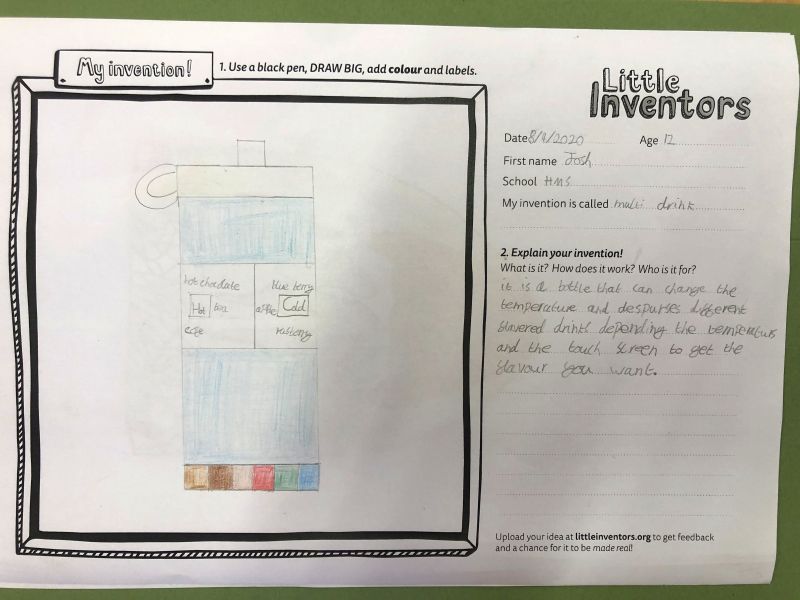 My invention!
1. Use a black pen, DRAW BIG, add colour and labels.
Little
Inventors
Date 8/9/2020 Age 12
First name Josh
School HMS
My invention is called multi drink
2. Explain your invention!
What is it? How does it work? Who is it for?
it is a bottle that can change the
temperature and despurses different
flavered drinks depending the temperature
and the touch screen to get the
flavour you want.
hot chocolate
Hot tea
blue berry
apple Cold
rasberry
Upload your idea at littleinventors.org to get feedback
and a chance for it to be made real!